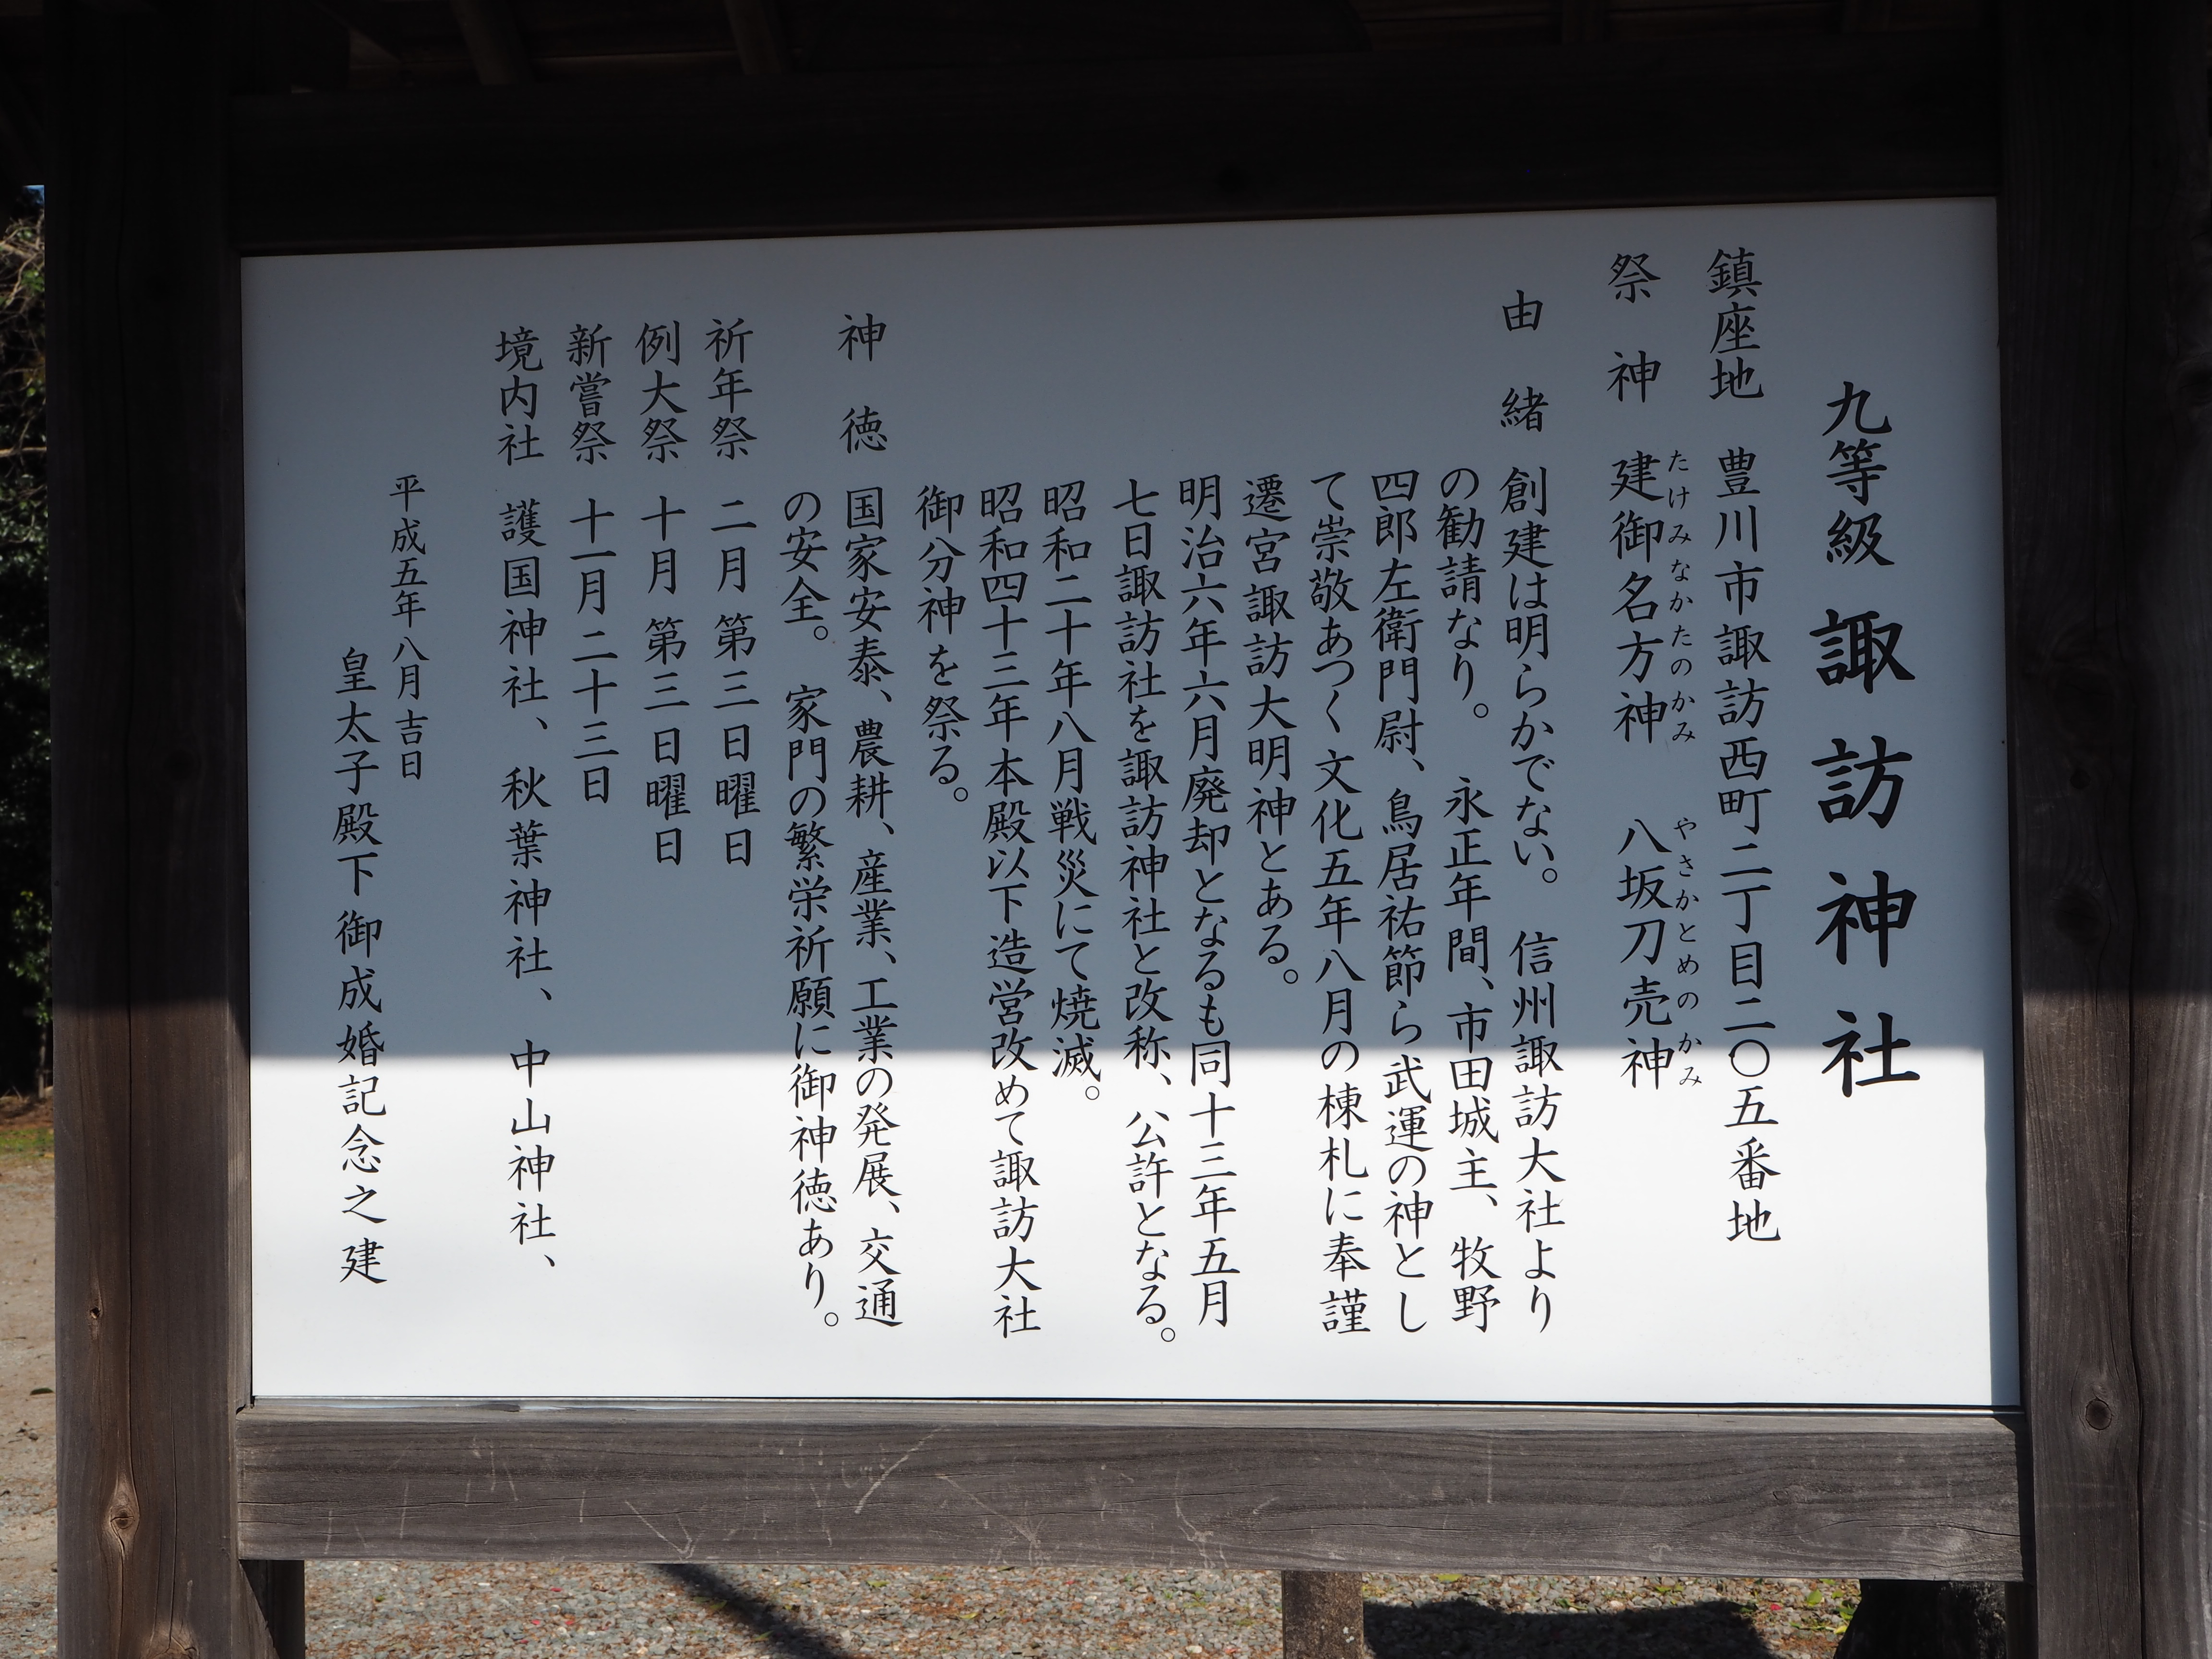 九等級 諏訪神社
鎮座地 豊川市諏訪西町二丁目二〇五番地
祭神 建御名方神 八坂刀売神
たけみなかたのかみ やさかとめのかみ
由緒 創建は明らかでない。 信州諏訪大社より
の勧請なり。 永正年間、市田城主、牧野
四郎左衛門尉、鳥居祐節ら武運の神とし
て崇敬あつく文化五年八月の棟札に奉謹
遷宮諏訪大明神とある。
明治六年六月廃却となるも同十三年五月
七日諏訪社を諏訪神社と改称、公許となる。
昭和二十年八月戦災にて焼滅。
昭和四十三年本殿以下造営改めて諏訪大社
御分神を祭る。
神徳 国家安泰、農耕、産業、工業の発展、交通
の安全。 家門の繁栄祈願に御神徳あり。
祈年祭 二月 第三日曜日
例大祭 十月 第三日曜日
新嘗祭 十一月二十三日
境内社 護国神社、秋葉神社、中山神社、
平成五年八月吉日
皇太子殿下御成婚記念之建